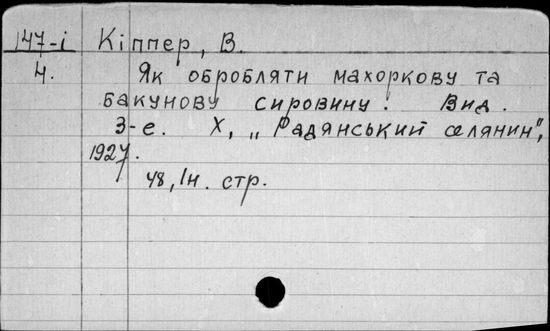 147-і Кіппер, В.
4. Як обробляти махоркову та
бакунову сировину. Вид.
3-е. Х, „Радянський селянин",
1927.
48, Ін. стр.